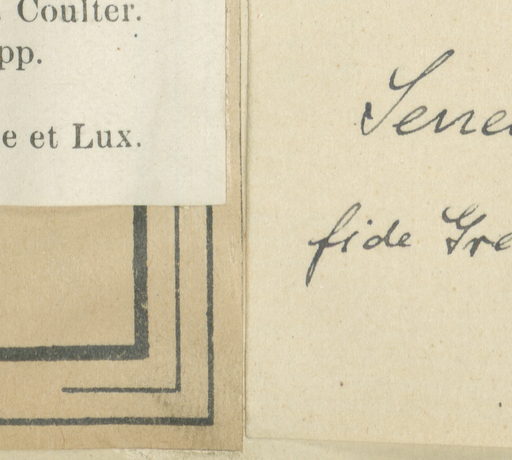 Coulter.
pp.
e et Lux.
Sene
fide Gre